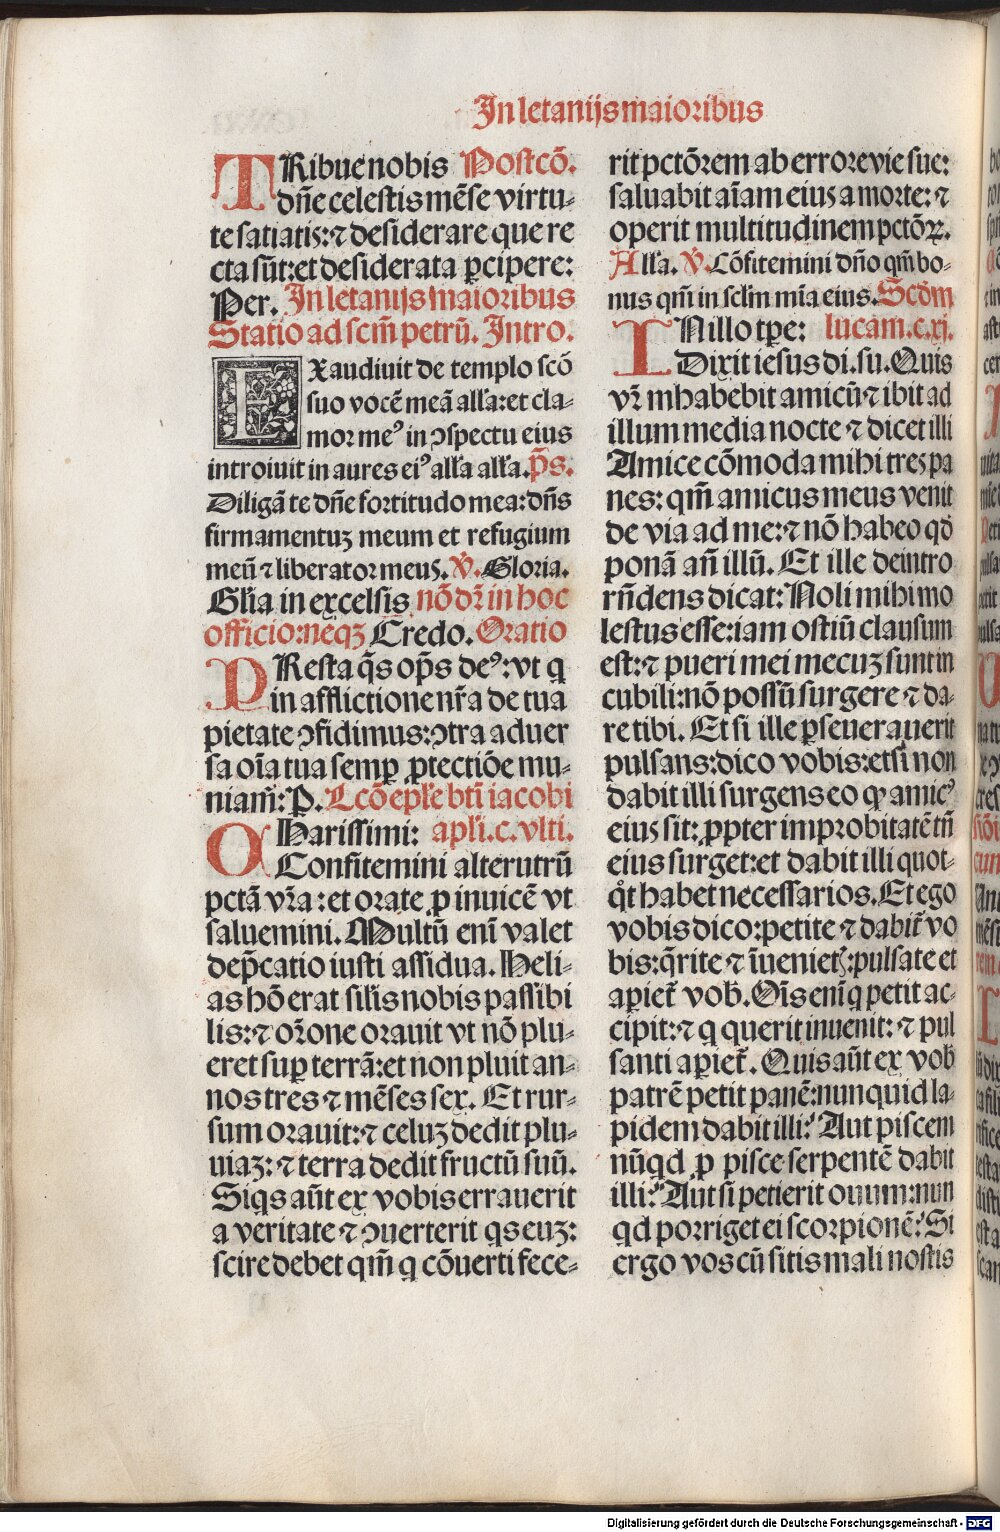 In letanijs maioribus
TRibue nobis Postcō.
dn̄e celestis mēse virtu⸗
te satiatis: ⁊ desiderare que re
cta sūt: et desiderata ꝑcipere:
Per. In letanijs maioribus
Statio ad scm̄ petrū. Intro.
EXaudiuit de templo scō
suo vocē meā alľa: et cla⸗
mor meꝰ in ↄspectu eius
introiuit in aures eiꝰ alľa alľa. p̄s.
Diligā te dn̄e fortitudo mea: dn̄s
firmamentuꝫ meum et refugium
meū ⁊ liberator meus. V̄. Gloria.
Glīa in excelsis nō dr̄ in hoc
officio: neqꝫ Credo. Oratio
PResta q̄s op̄s deꝰ: vt q
in afflictione nr̄a de tua
pietate ↄfidimus: ↄtra aduer
sa oīa tua semꝑ ꝓtectiōe mu⸗
niam̄: P. Lcō ep̄le bti iacobi
CHarissimi: apľi. c. vlti.
Confitemini alterutrū
pctā vr̄a: et orate ꝓ inuicē vt
saluemini. Multū enī valet
dep̄catio iusti assidua. Heli⸗
as hō erat siľis nobis passibi
lis: ⁊ or̄one orauit vt nō plu⸗
eret suꝑ terrā: et non pluit an⸗
nos tres ⁊ mēses sex. Et rur⸗
sum orauit: ⁊ celuꝫ dedit plu⸗
uiaꝫ: ⁊ terra dedit fructū suū.
Siqs aūt ex vobis errauerit
a veritate ⁊ ↄuerterit qs euꝫ:
scire debet qm̄ q cōuerti fece⸗
rit pctōrem ab errore vie sue:
saluabit aīam eius a morte: ⁊
operit multitudinem pctōꝝ.
Alľa. V̄. Cōfitemini dn̄o qm̄ bo⸗
nus qm̄ in sclm̄ mīa eius. Scd̄m
IN illo tꝑe: lucam. c. xj.
Dixit iesus di. su. Quis
vr̄m habebit amicū ⁊ ibit ad
illum media nocte ⁊ dicet illi
Amice cōmoda mihi tres pa
nes: qm̄ amicus meus venit
de via ad me: ⁊ nō habeo qd̄
ponā an̄ illū. Et ille deintro
rn̄dens dicat: Noli mihi mo
lestus esse: iam ostiū clausum
est: ⁊ pueri mei mecuꝫ sunt in
cubili: nō possū surgere ⁊ da⸗
re tibi. Et si ille ꝑseuerauerit
pulsans: dico vobis: etsi non
dabit illi surgens eo ꝙ amicꝰ
eius sit: ꝓpter improbitatē tn̄
eius surget: et dabit illi quot⸗
qͦt habet necessarios. Et ego
vobis dico: petite ⁊ dabit̄ vo
bis: q̄rite ⁊ īuenietꝭ: pulsate et
apiet̄ vob̄. Oīs enī q petit ac⸗
cipit: ⁊ q querit inuenit: ⁊ pul
santi apiet̄. Quis aūt ex vob̄
patrē petit panē: nunquid la⸗
pidem dabit illi? Aut piscem
nūqd ꝓ pisce serpentē dabit
illi? Aut si petierit ouum: nun
qd porriget ei scorpionē? Si
ergo vos cū sitis mali nostis
Digitalisierung gefördert durch die Deutsche Forschungsgemeinschaft - DFG